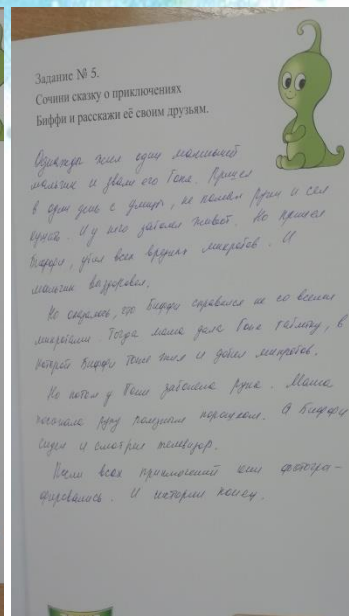 Задание № 5.
Сочини сказку о приключениях
Биффи и расскажи её своим друзьям.
Однажды жил один маленький
мальчик и звали его Гона. Пришел
в один день с улицы, не помыл руки и сел
кушать. И у него заболел живот. Но пришел
Биффи, убил всех вредных микробов. И
мальчик выздоровел.
Но оказалось, что Биффи справился не со всеми
микробами. Тогда мама дала Гоне таблетку, в
которой Биффи тоже жил и добил микробов.
Но потом у Гоши заболела рука. Мама
посыпала руку полезным порошком. А Биффи
сидел и смотрел телевизор.
После всех приключений они фотогра-
фировались. И истории конец.